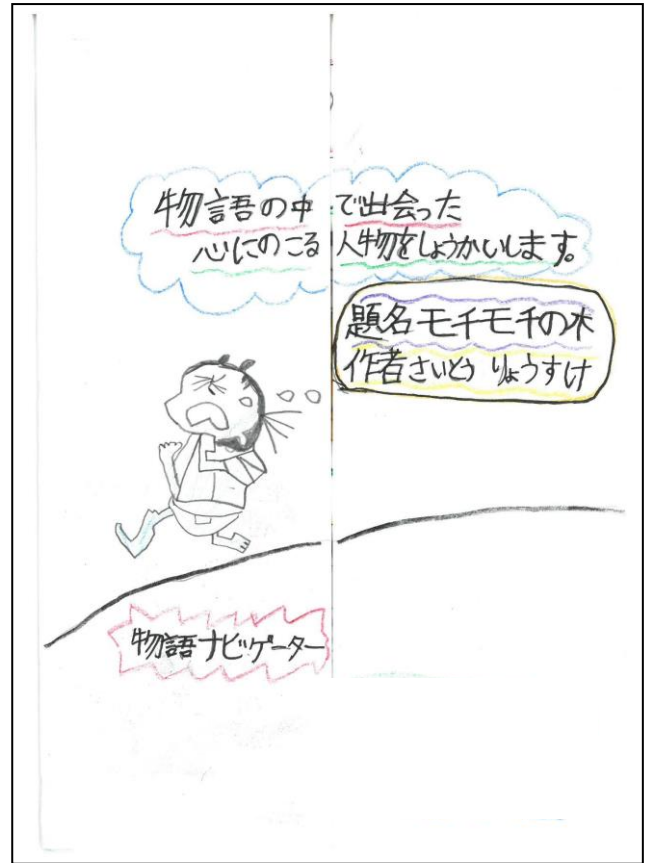 物語の中で出会った
心にのこる人物をしょうかいします。
題名モチモチの木
作者さいとうりょうすけ
物語ナビゲーター